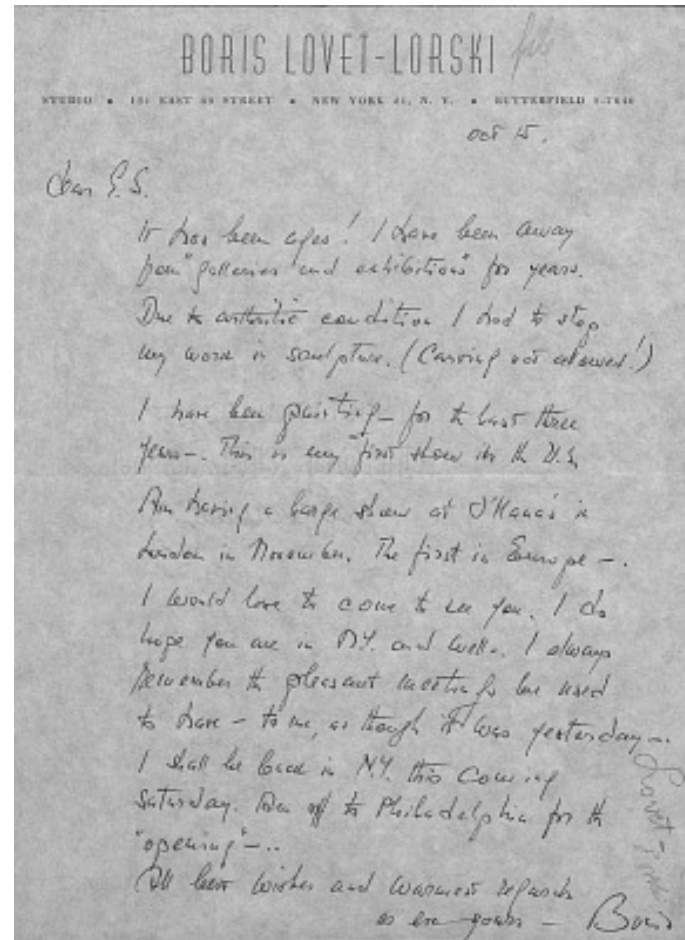 BORIS LOVET-LORSKI
STUDIO • 131 EAST 69 STREET • NEW YORK 21, N. Y. • BUTTERFIELD 8-7840
oct 15.
Dear E.S.
It has been ages! I have been away
from "galleries and exhibitions" for years.
Due to arthritic condition I had to stop
my work in sculpture. (Carving not allowed!)
I have been painting – for the last three
years –. This is my first show in the U.S.
Am having a large show at O'Hana's in
London in November. The first in Europe –.
I would love to come to see you. I do
hope you are in N.Y. and well –. I always
remember the pleasant meetings we used
to have – to me, as though it was yesterday –.
I shall be back in N.Y. this coming
Saturday. Am off to Philadelphia for the
"opening" – ..
All best wishes and warmest regards
as ever yours – Boris
Lovet-